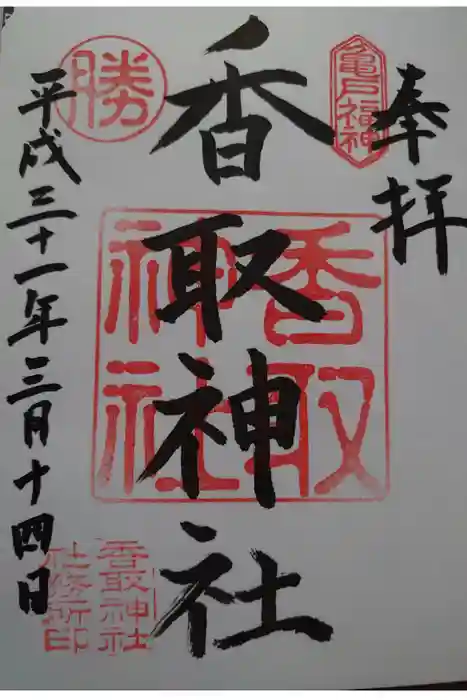 奉拝
亀戸福神
香取神社
香取神社
勝
平成三十一年三月十四日
香取神社
社務所印